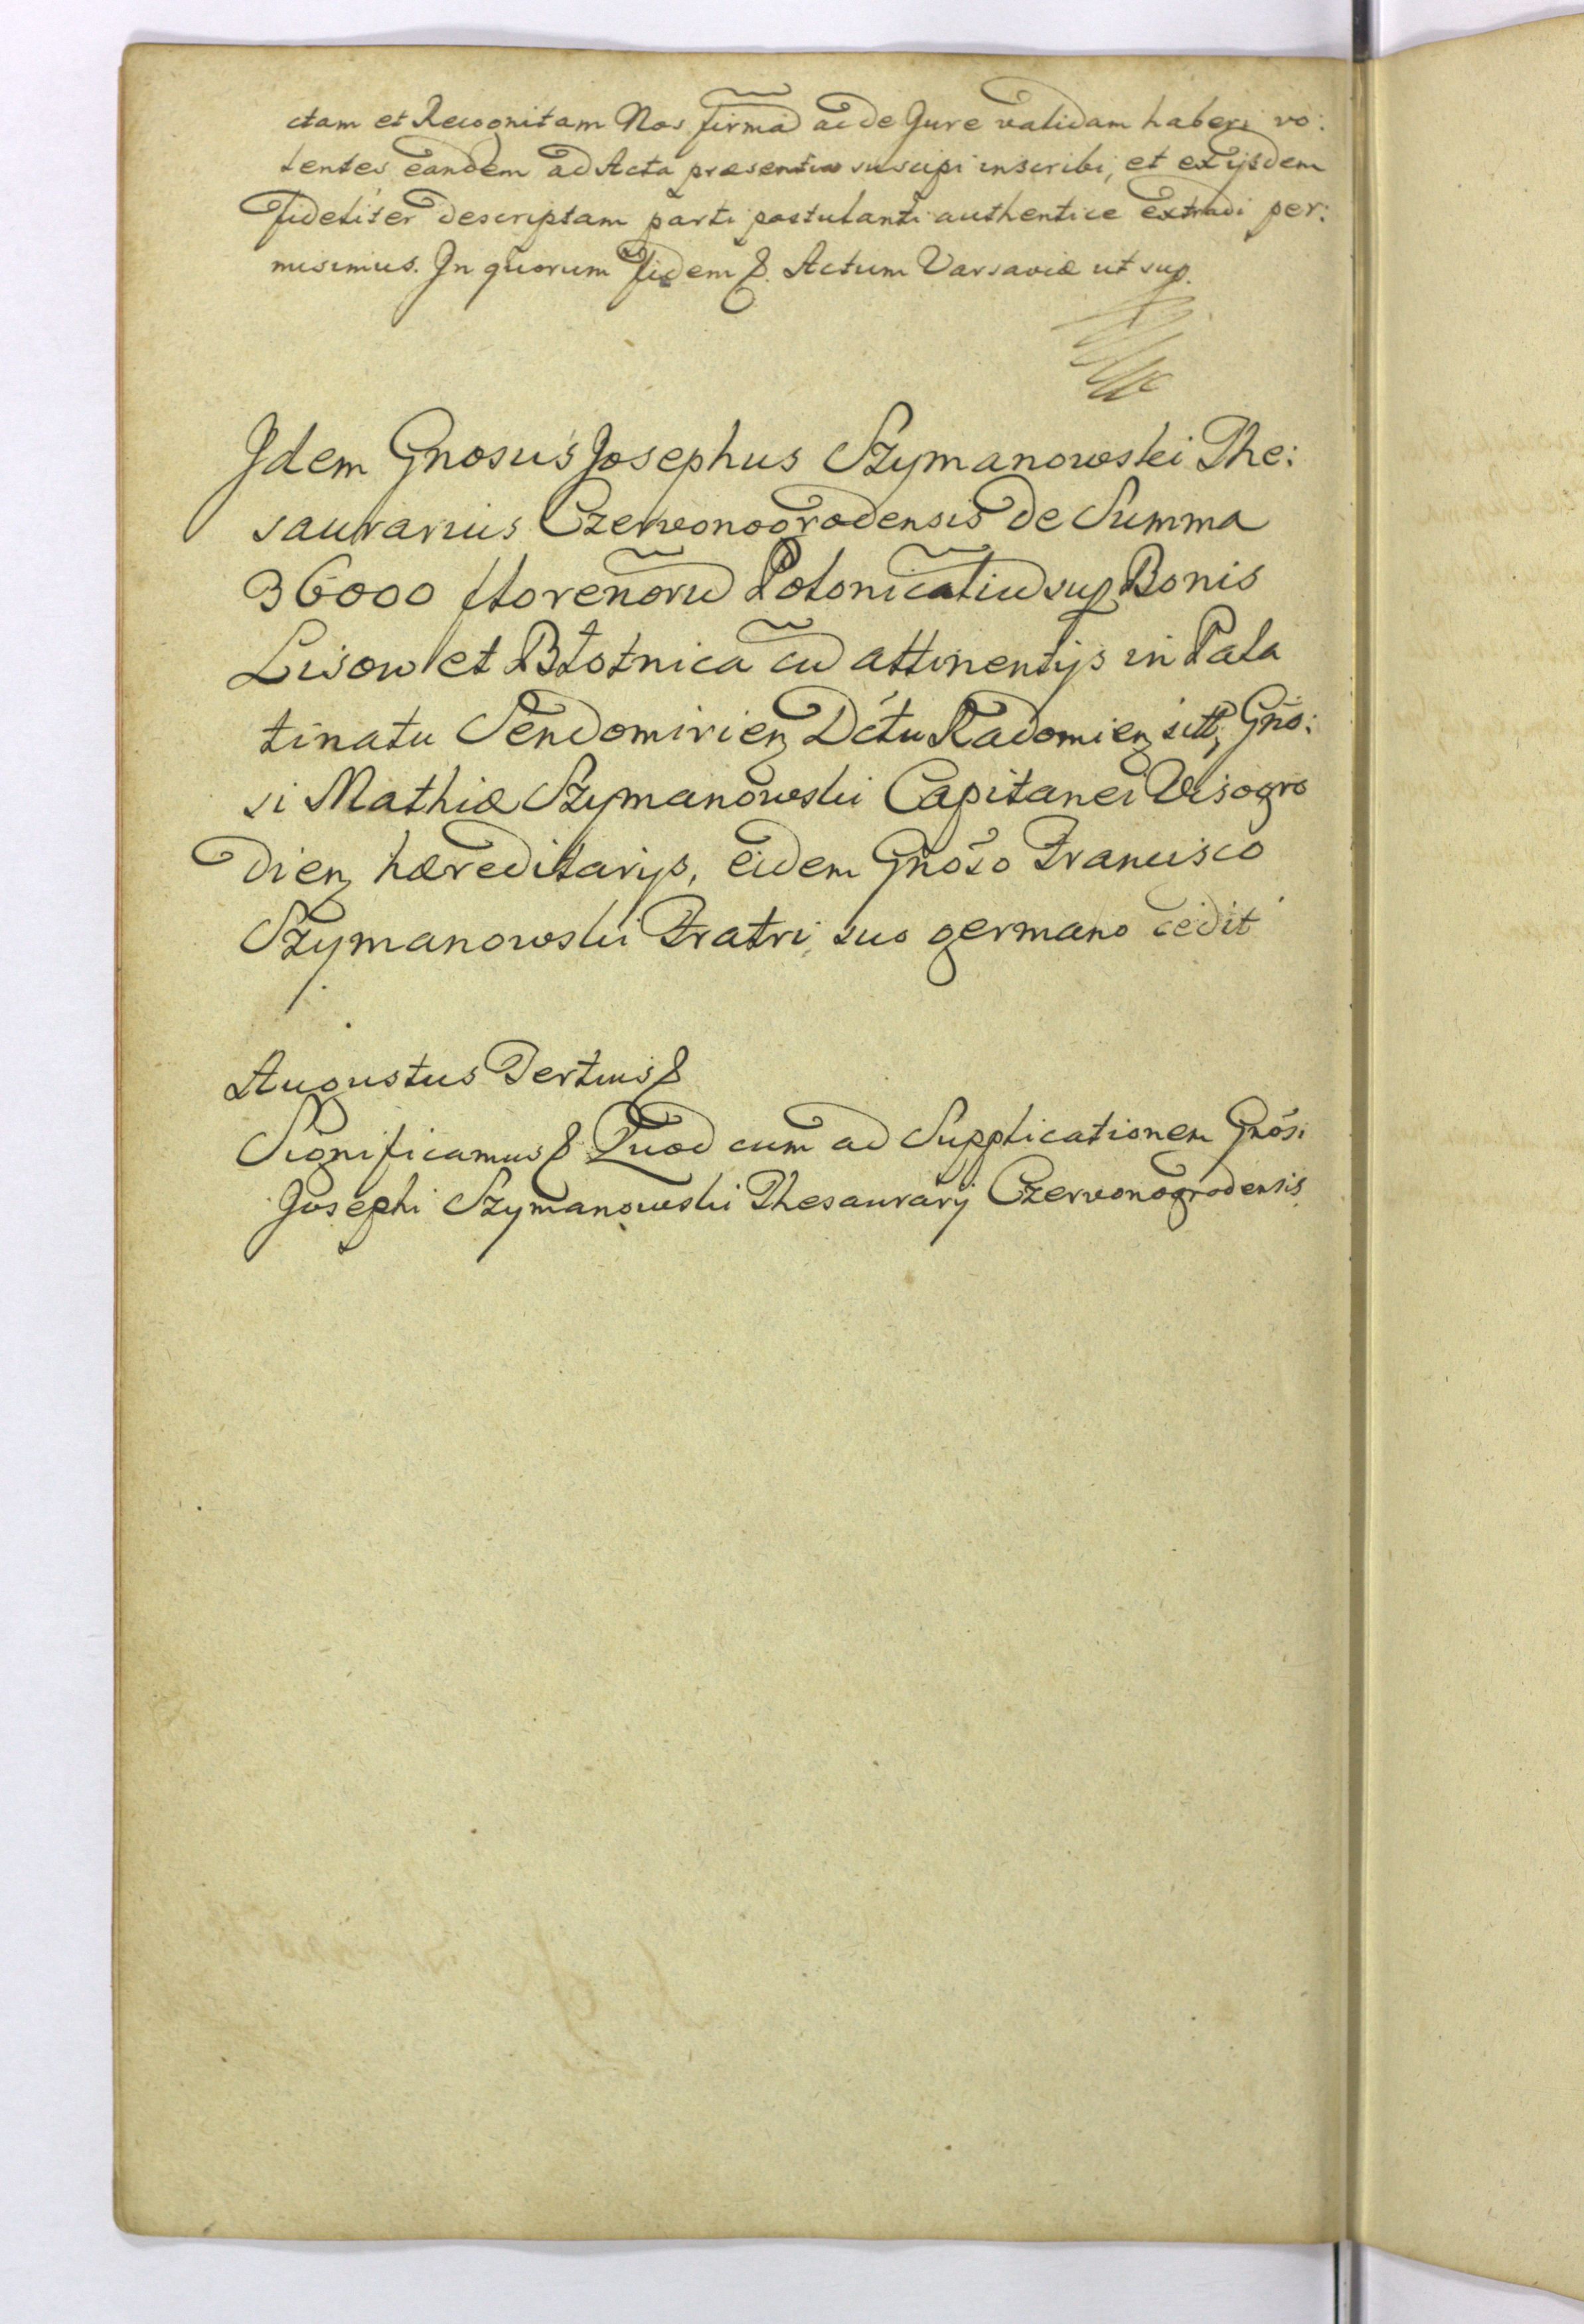 ctam et Recognitam Nos firmã ac de Jure validam haberi vo:
lentes eandem ad Acta præsentia suscipi inscribi, et ex ijsdem
fideliter descriptam parti postulanti authentice extradi per:
misimus. In quorum fidem &. Actum Varsaviæ ut sup.
Idem Gnosus Josephus Szymanowski The:
saurarius Czerwonogrodensis de Summa
36000 florenorũ Polonicaliũ sup Bonis
Lisow et Błotnica cũ attinentijs in Pala
tinatu Sendomirien Dctu Radomien sitt, Gño:
si Mathiæ Szymanowski Capitanei Visogro
dien hæreditarijs, eidem Gñoso Francisco
Szymanowski Fratri suo germano cedit
Augustus Tertius &
Significamus & Quod cum ad Supplicationem Gnosi
Josephi Szymanowski Thesaurarij Czerwonogrodensis